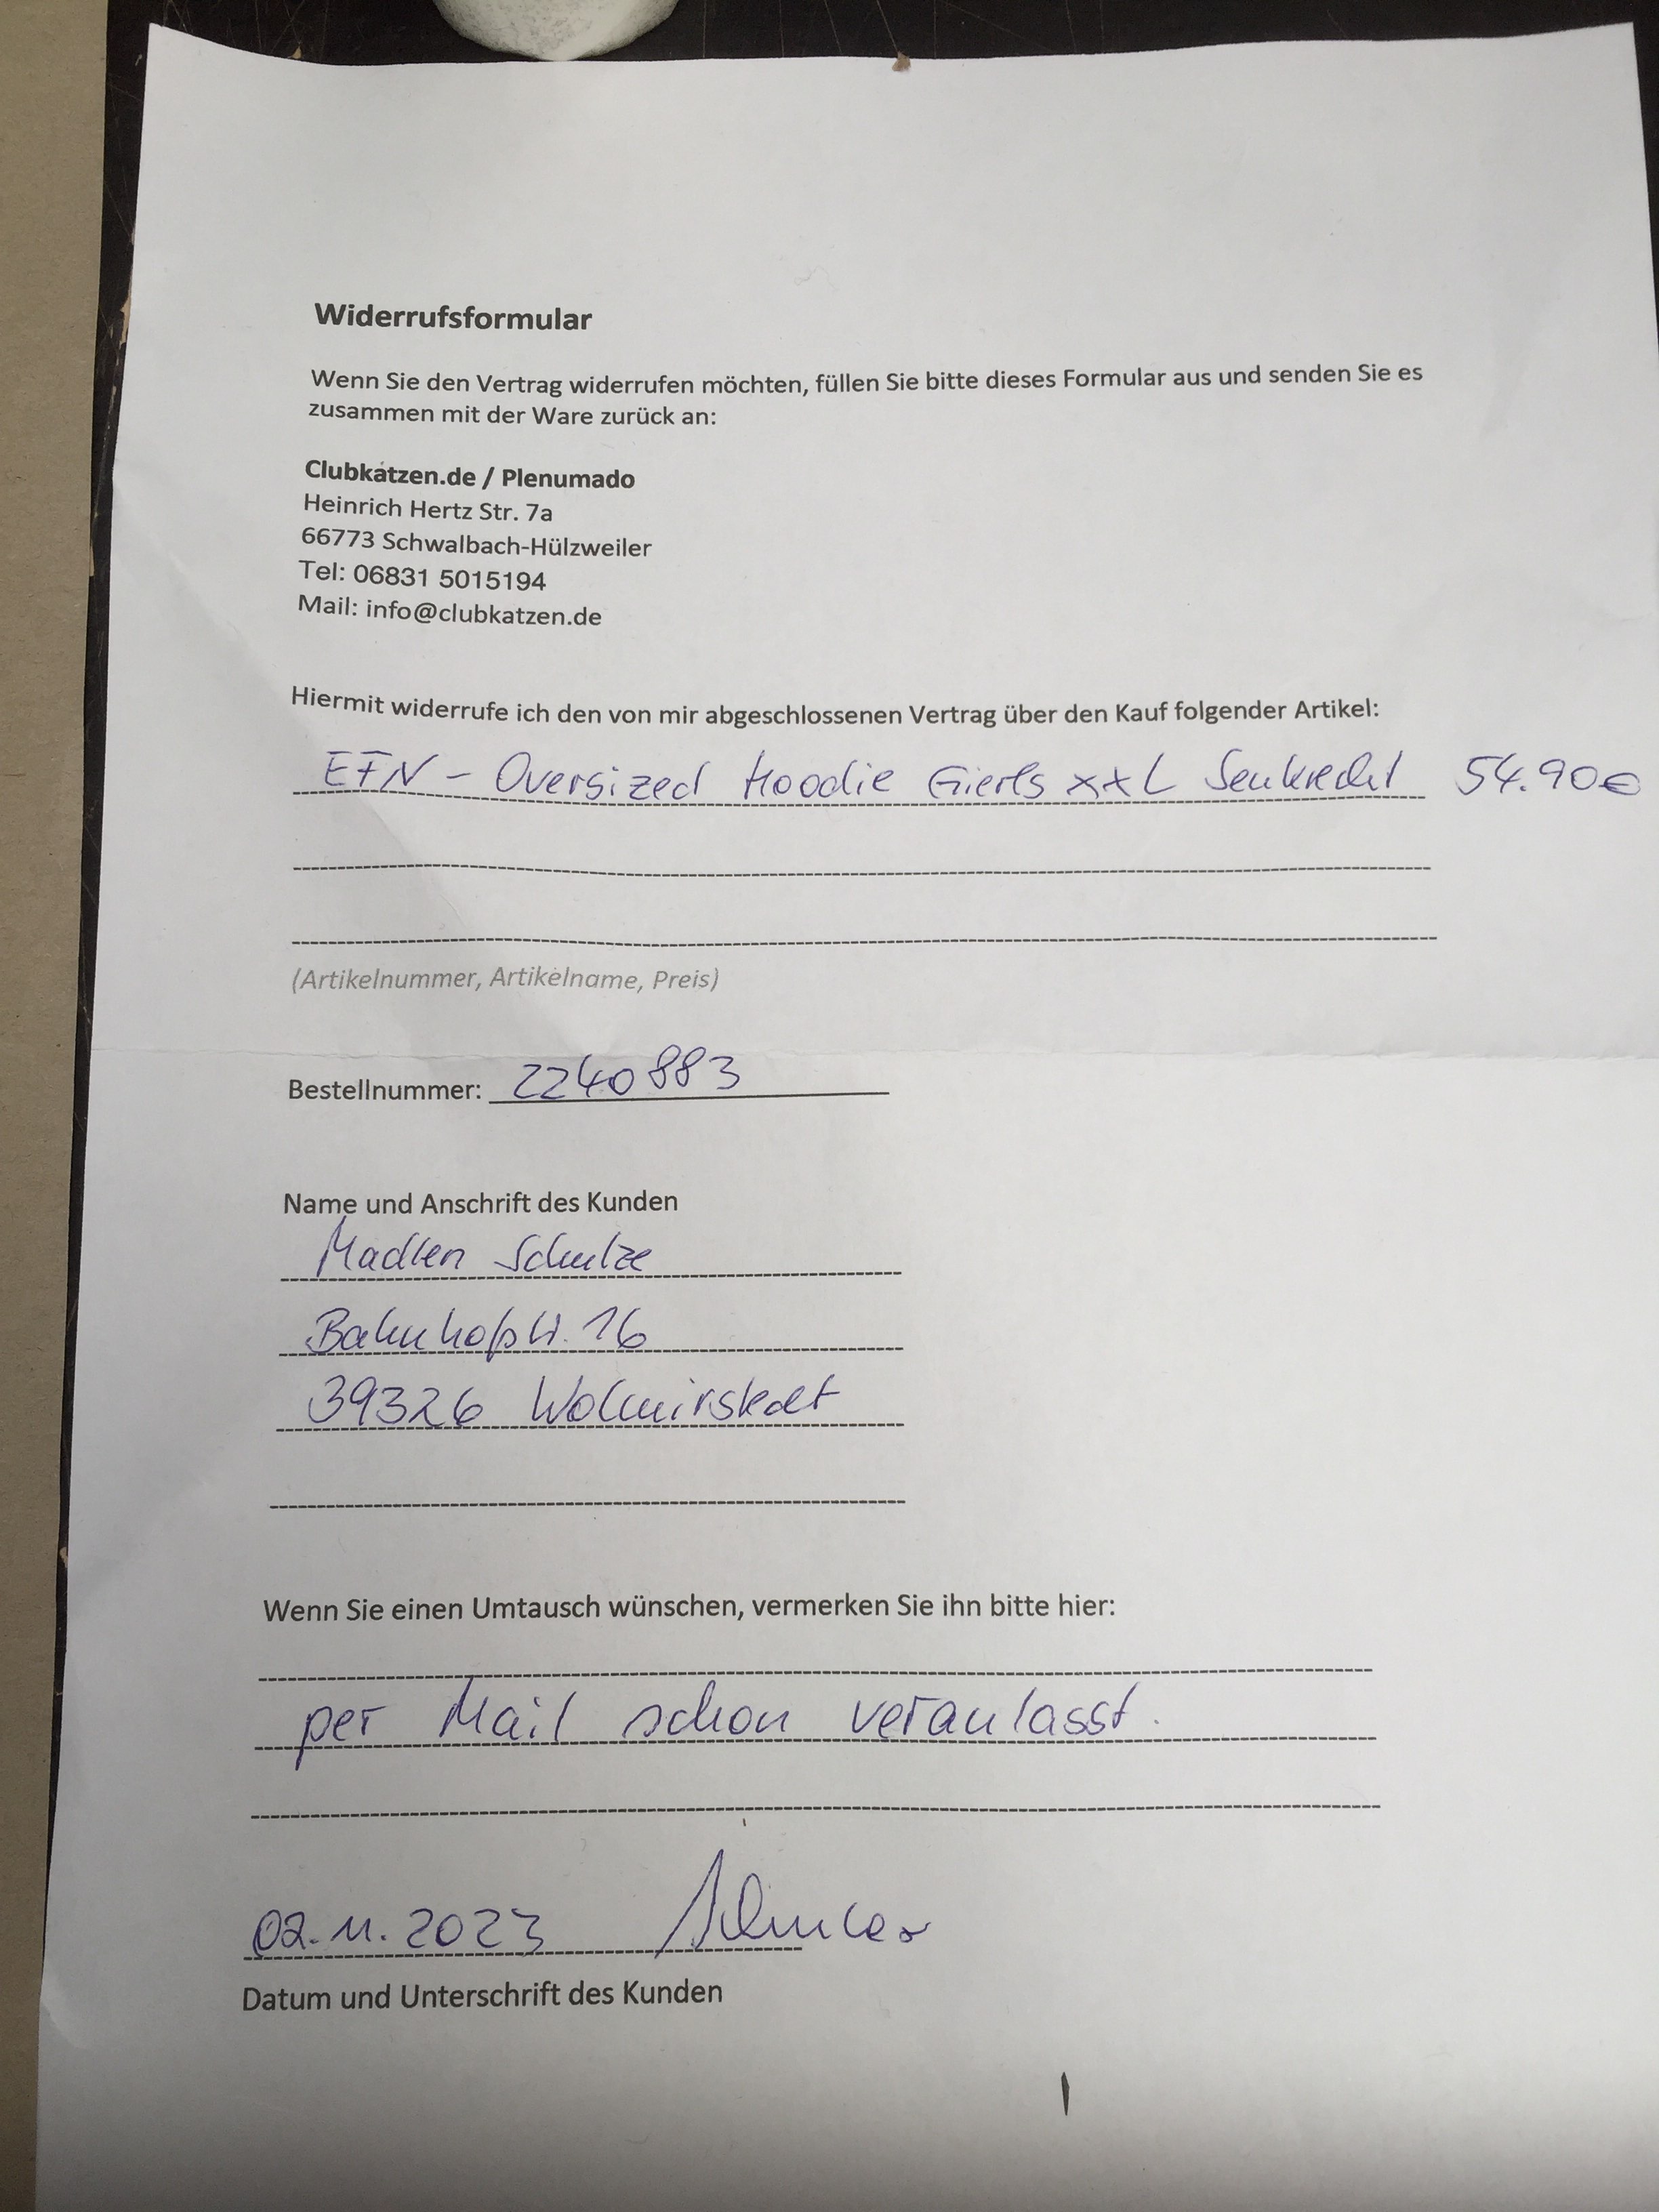 Widerrufsformular
Wenn Sie den Vertrag widerrufen möchten, füllen Sie bitte dieses Formular aus und senden Sie es
zusammen mit der Ware zurück an:
Clubkatzen.de / Plenumado
Heinrich Hertz Str. 7a
66773 Schwalbach-Hülzweiler
Tel: 06831 5015194
Mail: info@clubkatzen.de
Hiermit widerrufe ich den von mir abgeschlossenen Vertrag über den Kauf folgender Artikel:
EFN - Oversized Hoodie Gierls xxL Senkrecht 54.90€
(Artikelnummer, Artikelname, Preis)
Bestellnummer: 2240883
Name und Anschrift des Kunden
Madlen Schulze
Bahnhofstr. 16
39326 Wolmirstedt
Wenn Sie einen Umtausch wünschen, vermerken Sie ihn bitte hier:
per Mail schon veranlasst.
02.11.2023
Datum und Unterschrift des Kunden